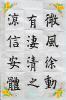 微風徐動
有淒清之
涼信安體